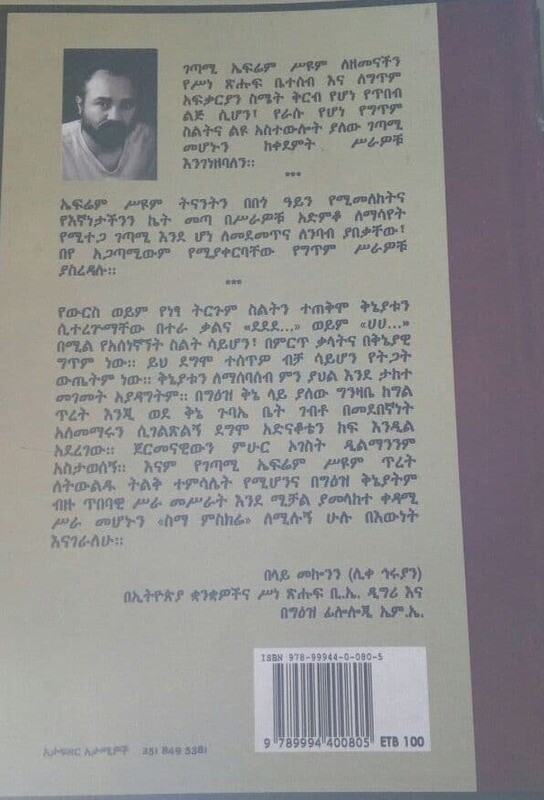 ገጣሚ ኤፍሬም ሥዩም ለዘመናችን
የሥነ ጽሑፍ ቤተሰብ እና ለግጥም
አፍቃርያን ስሜት ቅርብ የሆነ የጥበብ
ልጅ ሲሆን፣ የራሱ የሆነ የግጥም
ስልትና ልዩ አስተውሎት ያለው ገጣሚ
መሆኑን ከቀደምት ሥራዎቹ
እንገነዘባለን።
***
ኤፍሬም ሥዩም ትናንትን በበጎ ዓይን የሚመለከትና
የእኛነታችንን ኬት መጣ በሥራዎቹ አድምቆ ለማሳየት
የሚተጋ ገጣሚ እንደ ሆነ ለመደመጥና ለንባብ ያበቃቸው፣
በየ አጋጣሚውም የሚያቀርባቸው የግጥም ሥራዎቹ
ያስረዳሉ።
***
የውርስ ወይም የነፃ ትርጉም ስልትን ተጠቅሞ ቅኔያቱን
ሲተረጉማቸው በተራ ቃልና «ደደደ...» ወይም «ሀሀ...»
በሚል የአሰነኛኘት ስልት ሳይሆን፣ በምርጥ ቃላትና በቅኔያዊ
ግጥም ነው። ይህ ደግሞ ተሰጥዎ ብቻ ሳይሆን የትጋት
ውጤትም ነው። ቅኔያቱን ለማሰባሰብ ምን ያህል እንደ ታከተ
መገመት አያዳግትም። በግዕዝ ቅኔ ላይ ያለው ግንዛቤ ከግል
ጥረት እንጂ ወደ ቅኔ ጉባኤ ቤት ገብቶ በመደበኛነት
አለመማሩን ሲገልጽልኝ ደግሞ አድናቆቴን ከፍ እንዲል
አደረገው። ጀርመናዊውን ምሁር ኦገስት ዲልማንንም
አስታወሰኝ። እናም የገጣሚ ኤፍሬም ሥዩም ጥረት
ለትውልዱ ትልቅ ተምሳሌት የሚሆንና በግዕዝ ቅኔያትም
ብዙ ጥበባዊ ሥራ መሥራት እንደ ሚቻል ያመላከተ ቀዳሚ
ሥራ መሆኑን «ስማ ምስክሬ» ለሚሉኝ ሁሉ በእውነት
እናገራለሁ።
በላይ መኰንን (ሊቀ ኅሩያን)
በኢትዮጵያ ቋንቋዎችና ሥነ ጽሑፍ ቢ.ኤ. ዲግሪ እና
በግዕዝ ፊሎሎጂ ኤም.ኤ.
ISBN 978-99944-0-080-5
9 789994 400805 ETB 100
ኤታፍዘር አታሚዎች 251 849 5381